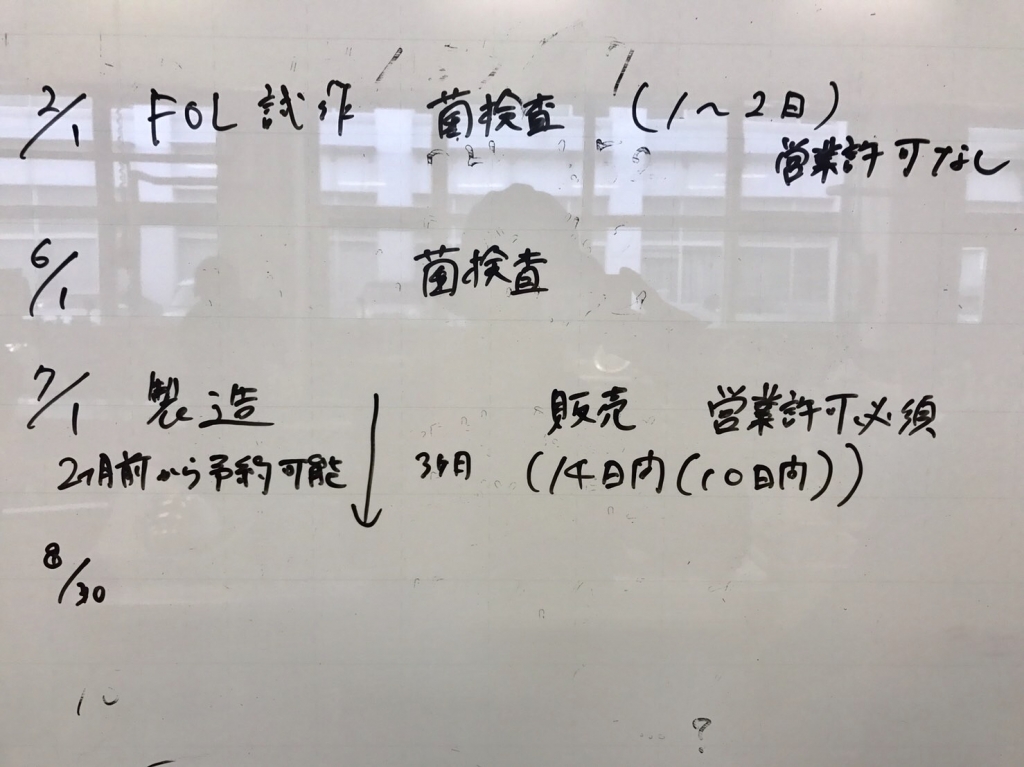 2/1 FOL 試作 菌検査 (1〜2日)
営業許可なし
6/1 菌検査
7/1 製造 販売 営業許可必須
2ヶ月前から予約可能 3ヶ月 (14日内(10日内))
8/30
?